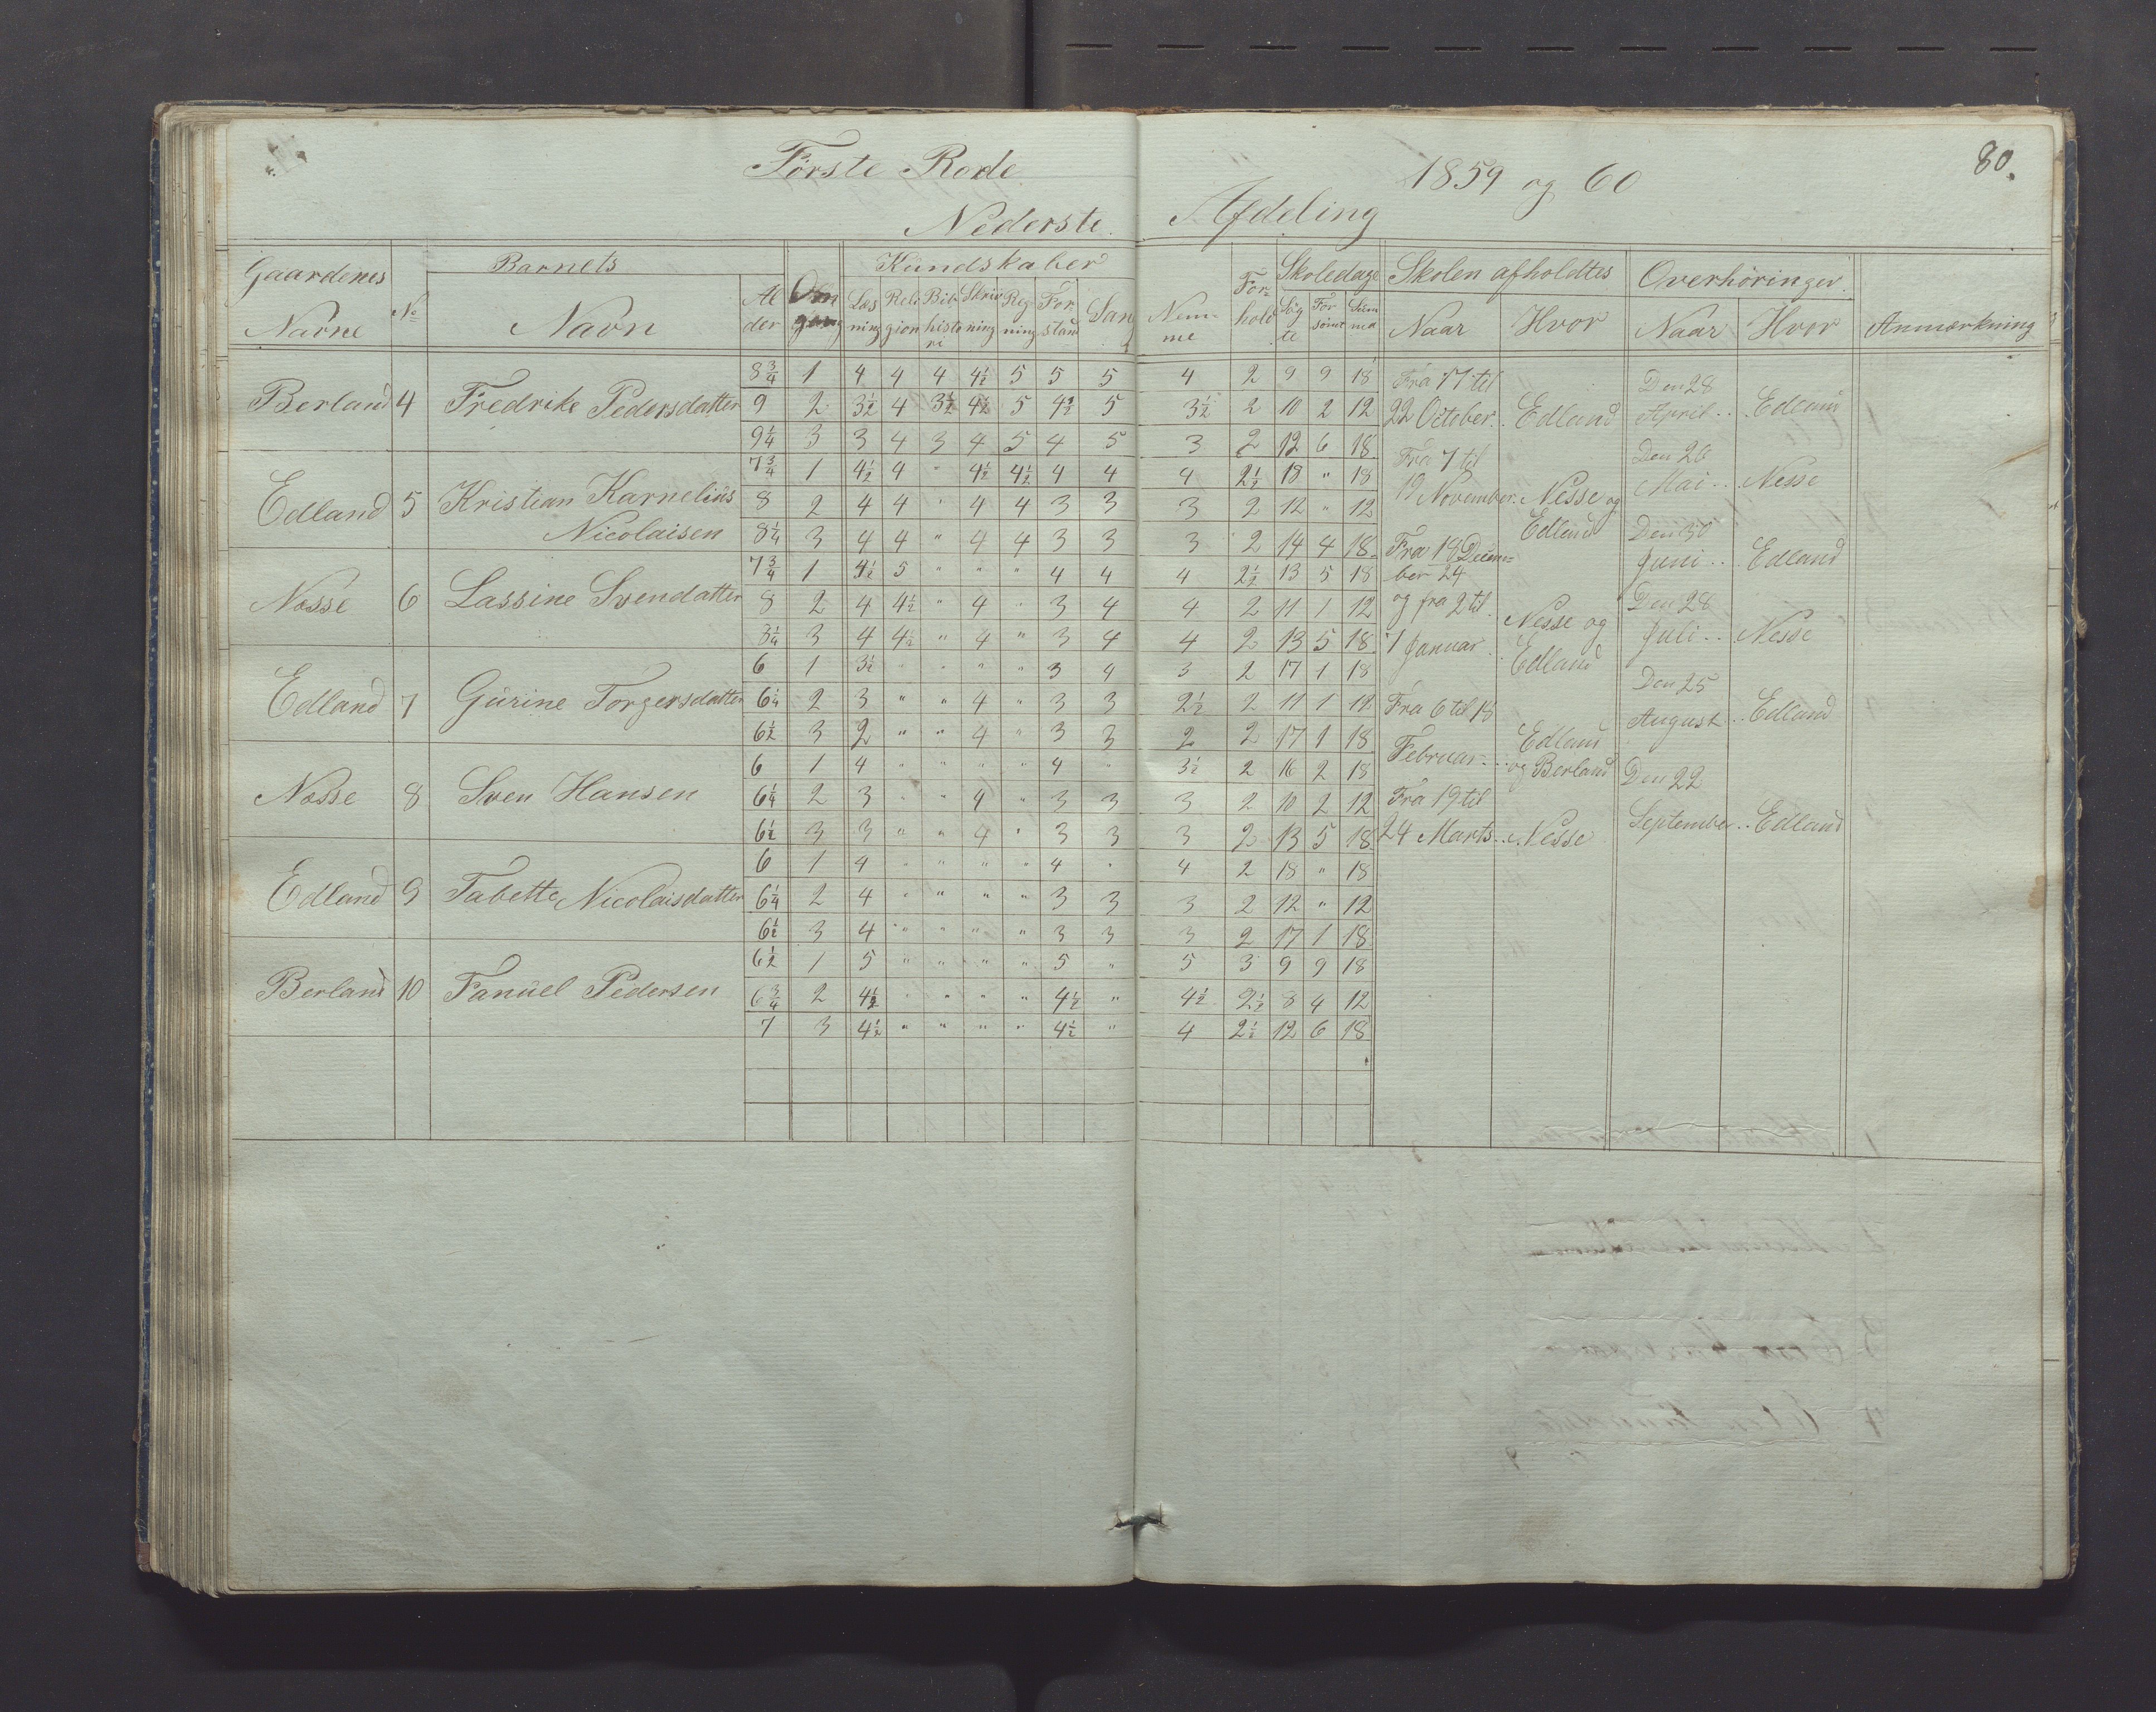 Første Rode
1859 og 60
80.
Nederste Afdeling
Gaardenes Navne | No | Barnets Navn | Al der | Om gang | Kundskaber | Læs ning | Reli gion | Bib histo ri | Skriv ning | Reg ning | For stand | Sang | Nem- me | For- hold | Skoledage | Søg te | For sømt | Sum ma | Skolen afholdtes | Naar | Hvor | Overhøringer. | Naar | Hvor | Anmærkning
8 3/4 | 1 | 4 | 4 | 4 | 4 1/2 | 5 | 5 | 5 | 4 | 2 | 9 | 9 | 18
Berland | 4 | Fredrike Pedersdatter | 9 | 2 | 3 1/2 | 4 | 3 1/2 | 4 1/2 | 5 | 4 1/2 | 5 | 3 1/2 | 2 | 10 | 2 | 12
9 1/4 | 3 | 3 | 4 | 3 | 4 | 5 | 4 | 5 | 3 | 2 | 12 | 6 | 18
7 3/4 | 1 | 4 1/2 | 4 | " | 4 1/2 | 4 1/2 | 4 | 4 | 4 | 2 1/2 | 18 | " | 18
Edland | 5 | Kristian Karnelius | 8 | 2 | 4 | 4 | " | 4 | 4 | 3 | 3 | 3 | 2 | 12 | " | 12
Nicolaisen | 8 1/4 | 3 | 4 | 4 | " | 4 | 4 | 3 | 3 | 3 | 2 | 14 | 4 | 18
7 3/4 | 1 | 4 1/2 | 5 | " | " | " | 4 | 4 | 4 | 2 1/2 | 13 | 5 | 18
Nesse | 6 | Lassine Svendatter | 8 | 2 | 4 | 4 1/2 | " | 4 | " | 3 | 4 | 4 | 2 | 11 | 1 | 12
3 1/4 | 3 | 4 | 4 1/2 | " | 4 | " | 3 | 4 | 4 | 2 | 13 | 5 | 18
6 | 1 | 3 1/2 | " | " | " | " | 3 | 4 | 3 | 2 | 17 | 1 | 18
Edland | 7 | Gurine Torgersdatter | 6 1/4 | 2 | 3 | " | " | 4 | " | 3 | 3 | 2 1/2 | 2 | 11 | 1 | 12
6 1/2 | 3 | 2 | " | " | 4 | " | 3 | 3 | 2 | 2 | 17 | 1 | 18
6 | 1 | 4 | " | " | " | " | 4 | " | 3 1/2 | 2 | 16 | 2 | 18
Nesse | 8 | Sven Hansen | 6 1/4 | 2 | 3 | " | " | 4 | " | 3 | 3 | 3 | 2 | 10 | 2 | 12
6 1/2 | 3 | 3 | " | " | 4 | " | 3 | 3 | 3 | 2 | 13 | 5 | 18
6 | 1 | 4 | " | " | " | " | 4 | " | 4 | 2 | 18 | " | 18
Edland | 9 | Tabette Nicolaisdatter | 6 1/4 | 2 | 4 | " | " | " | " | 3 | 3 | 3 | 2 | 12 | " | 12
6 1/2 | 3 | 4 | " | " | " | " | 3 | 3 | 3 | 2 | 17 | 1 | 18
6 1/2 | 1 | 5 | " | " | " | " | 5 | " | 5 | 3 | 9 | 9 | 18
Berland | 10 | Fanuel Pedersen | 6 3/4 | 2 | 4 1/2 | " | " | " | " | 4 1/2 | " | 4 1/2 | 2 1/2 | 8 | 4 | 12
7 | 3 | 4 1/2 | " | " | " | " | 4 1/2 | " | 4 | 2 1/2 | 12 | 6 | 18
Fra 17 til
22 October. . Edland
Fra 7 til
19 November. Nesse og
Edland
Fra 19 Decem=
ber 24
og fra 2 til
7 Januar . Nesse og
Edland
Fra 6 til 18
Februar. . Edland
og Berland
Fra 19 til
24 Marts. . Nesse
Den 28
April. . Edland
Den 26
Mai. . Nesse
Den 30
Juni. . Edland
Den 28
Juli. . Nesse
Den 25
August. . Edland
Den 22
September. . Edland